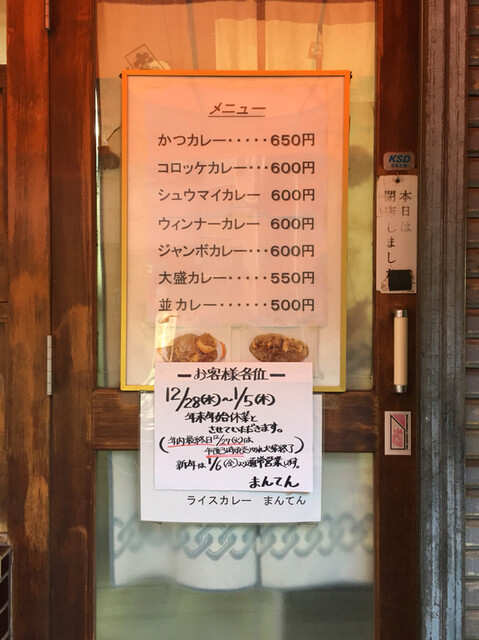 メニュー
かつカレー・・・・・650円
コロッケカレー・・・600円
シュウマイカレー 600円
ウィンナーカレー 600円
ジャンボカレー・・・600円
大盛カレー・・・・・550円
並カレー・・・・・・500円
KSD
本日は
閉店しました
ーお客様各位ー
12/28(水)〜1/5(木)
年末年始休業と
させていただきます。
年内最終日12/27(火)は
午後3時
終了
新年は1/6(金)より通常営業します。
まんてん
ライスカレー まんてん